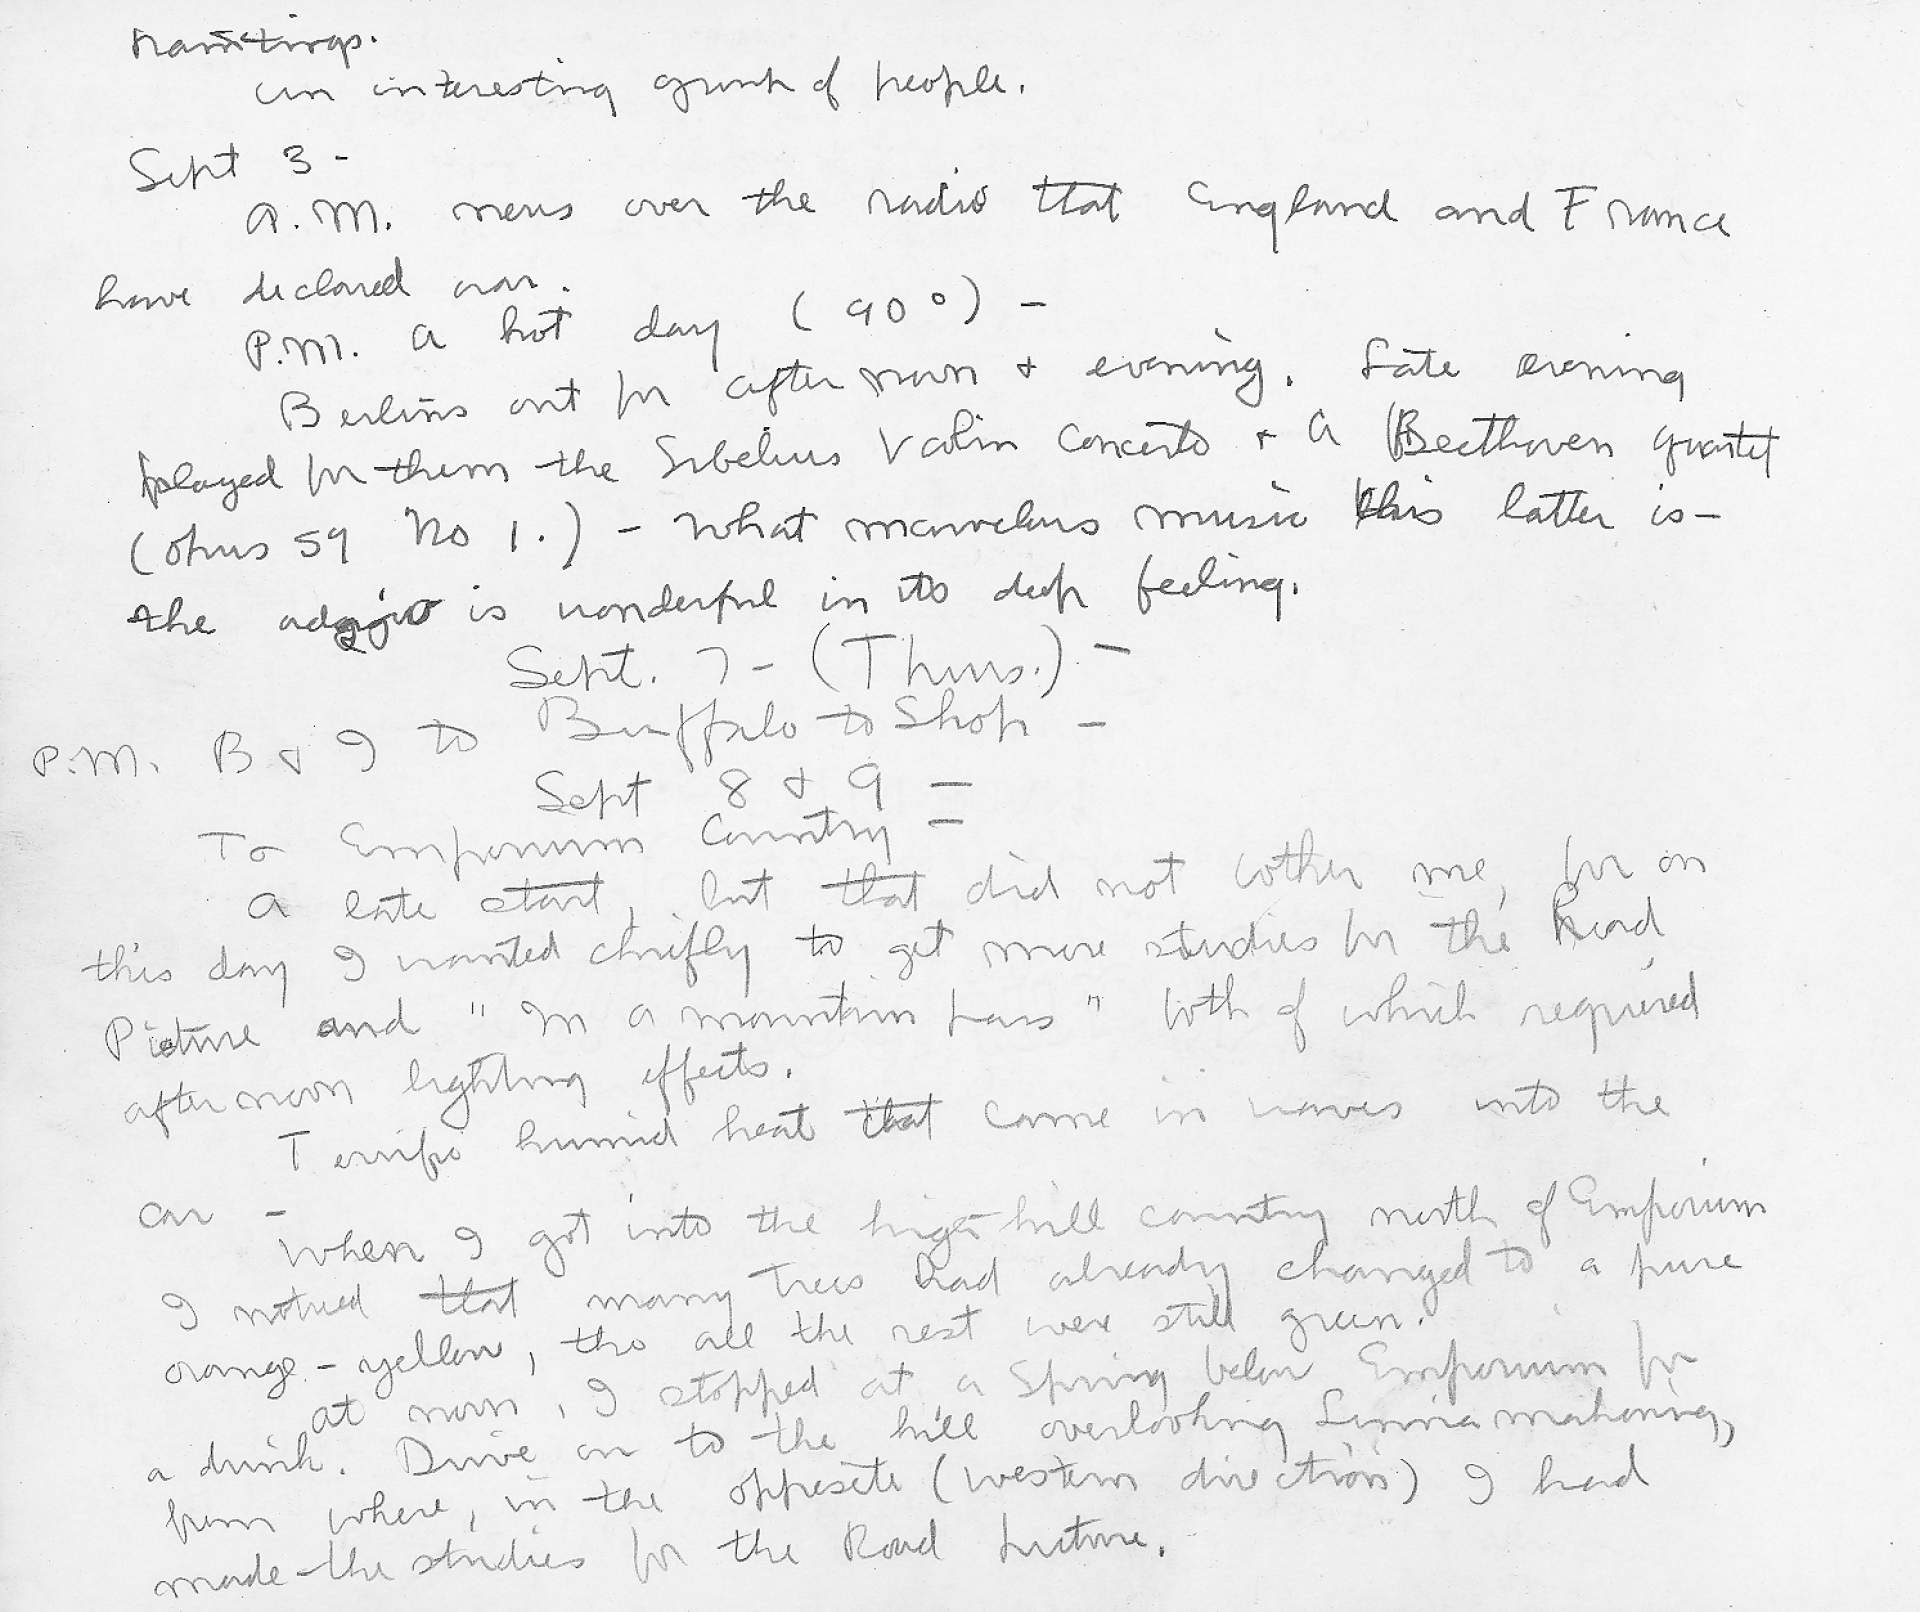 paintings.
An interesting group of people.
Sept 3 -
A.M. news over the radio that England and France
have declared war.
P.M. a hot day (90°) -
Berlins out for afternoon + evening. Late evening
played for them the Sibelius Violin Concerto + a Beethoven quartet
(opus 59 No 1.) - What marvelous music this latter is -
the adagio is wonderful in its deep feeling.
Sept. 7 - (Thurs.) -
P.M. B + I to Buffalo to Shop -
Sept 8 + 9 =
To Emporium Country =
A late start, but that did not bother me, for on
this day I wanted chiefly to get more studies for the Road
Picture and "In a mountain pass" both of which required
afternoon lighting effects.
Terrific humid heat that came in waves into the
car -
When I got into the high hill country north of Emporium
I noticed that many trees had already changed to a pure
orange-yellow, tho all the rest were still green.
At noon, I stopped at a Spring below Emporium for
a drink. Drive on to the hill overlooking Sinnamahoning,
from where, in the opposite (western direction) I had
made the studies for the Road picture.